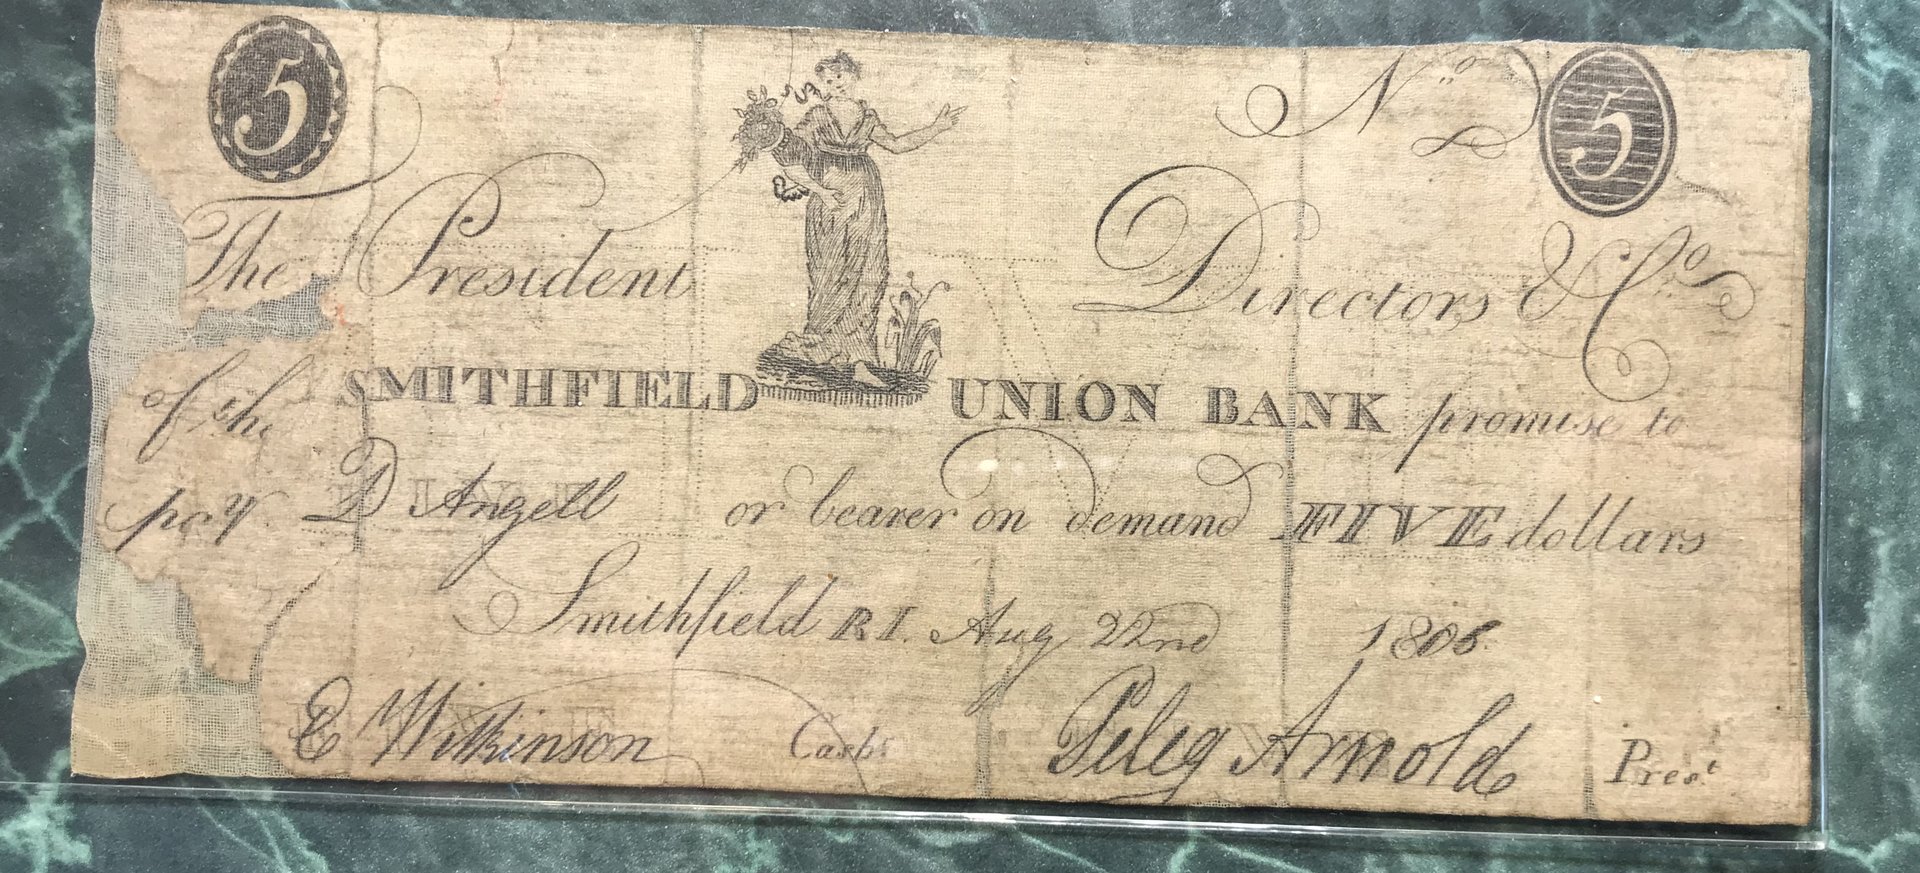 5 No 5
The President Directors & Co.
of the SMITHFIELD UNION BANK promise to
pay D Angell or bearer on demand FIVE dollars
Smithfield R I. Aug 22nd 1805.
E Wilkinson Cashr Peleg Arnold Prest